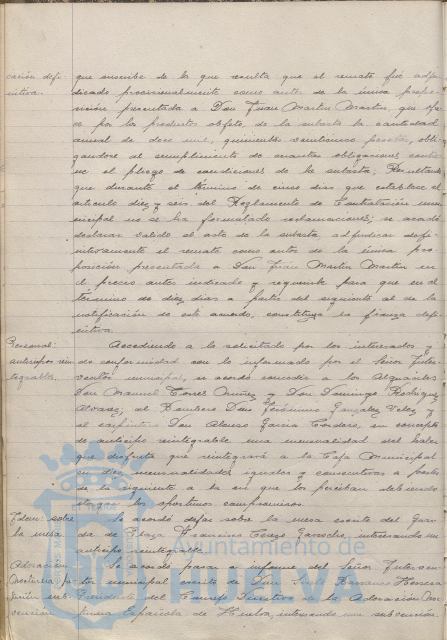 cación defi- que suscribe de lo que resulta que el remate fué adju-
nitiva. dicado provisionalmente como autor de la única propo-
sición presentada a Don Juan Martin Martin, que ofre-
ce por los productos objeto, de la subasta la cantidad
anual de doce mil, quinientas veinticinco pesetas, obli-
gandose al cumplimiento de cuantas obligaciones contie-
ne el pliego de condiciones de la subasta. Resultando
que durante el término de cinco dias que establece el
articulo diez y seis del Reglamento de Contratación mu-
nicipal no se ha formulado reclamaciones; se acordó
declarar valido el acto de la subasta adjudicar defi-
nitivamente el remate como autor de la única pro-
posición presentada a Don Juan Martin Martin en
el precio antes indicado y requerirle para que en el
término de diez dias a partir del siguiente al de la
notificación de este acuerdo, constituya la fianza defi-
nitiva.
Personal: Accediendo a lo solicitado por los interesados y
anticipos rein- de conformidad con lo informado por el Señor Inter-
tegrables. ventor municipal, se acordó conceder a los Alguaciles
Don Manuel Torres Muñoz y Don Domingo Rodriguez
Alvarez; al Bombero Don Jerónimo Gonzalez Velez y
al carpintero Don Alonso Garcia Cordero, en concepto
de anticipo reintegrable una mensualidad del haber
que disfruta que reintegrará a la Caja Municipal
en diez mensualidades iguales y consecutivas a partir
de la siguiente a la en que los perciban debiendo
los oportunos compromisos.
Idem: sobre Se acordó dejar sobre la mesa escrito del Guar-
la mesa da de Plaza interesando un
anticipo reintegrable.
Adoración Se acordó pasar a informe del Señor Interven-
Nocturna tor municipal escrito de Don
Presidente del Consejo Directivo de la Adoración Noc-
vención turna Española de Huelva, interesando una subvención
Ayuntamiento de
HUELVA